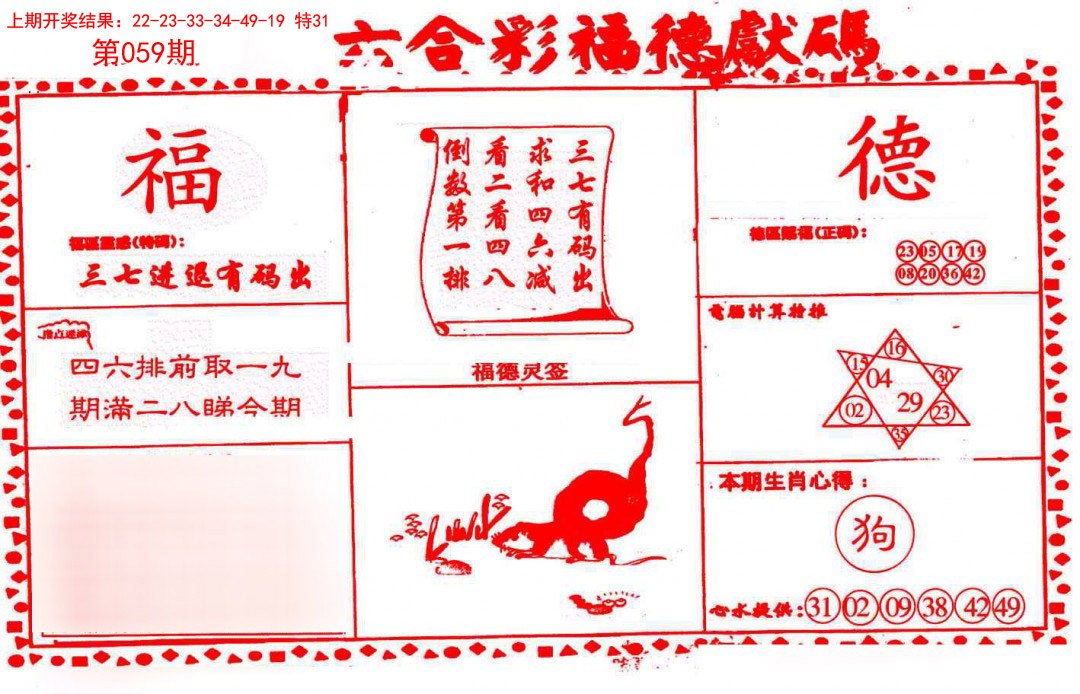 上期开奖结果：22-23-33-34-49-19 特31
第059期
六合彩福德獻碼
福
福區靈感(特碼)：
三七进退有码出
四六排前取一九
期滿二八睇今期
三七有码出
求和四六减
看二看四八
倒数第一排
福德灵签
德
(正碼)：
23 05 17 19
08 20 36 42
電腦計算精推
16
15
30
04
29
02
23
35
本期生肖心得：
狗
心水提供：31 02 09 38 42 49